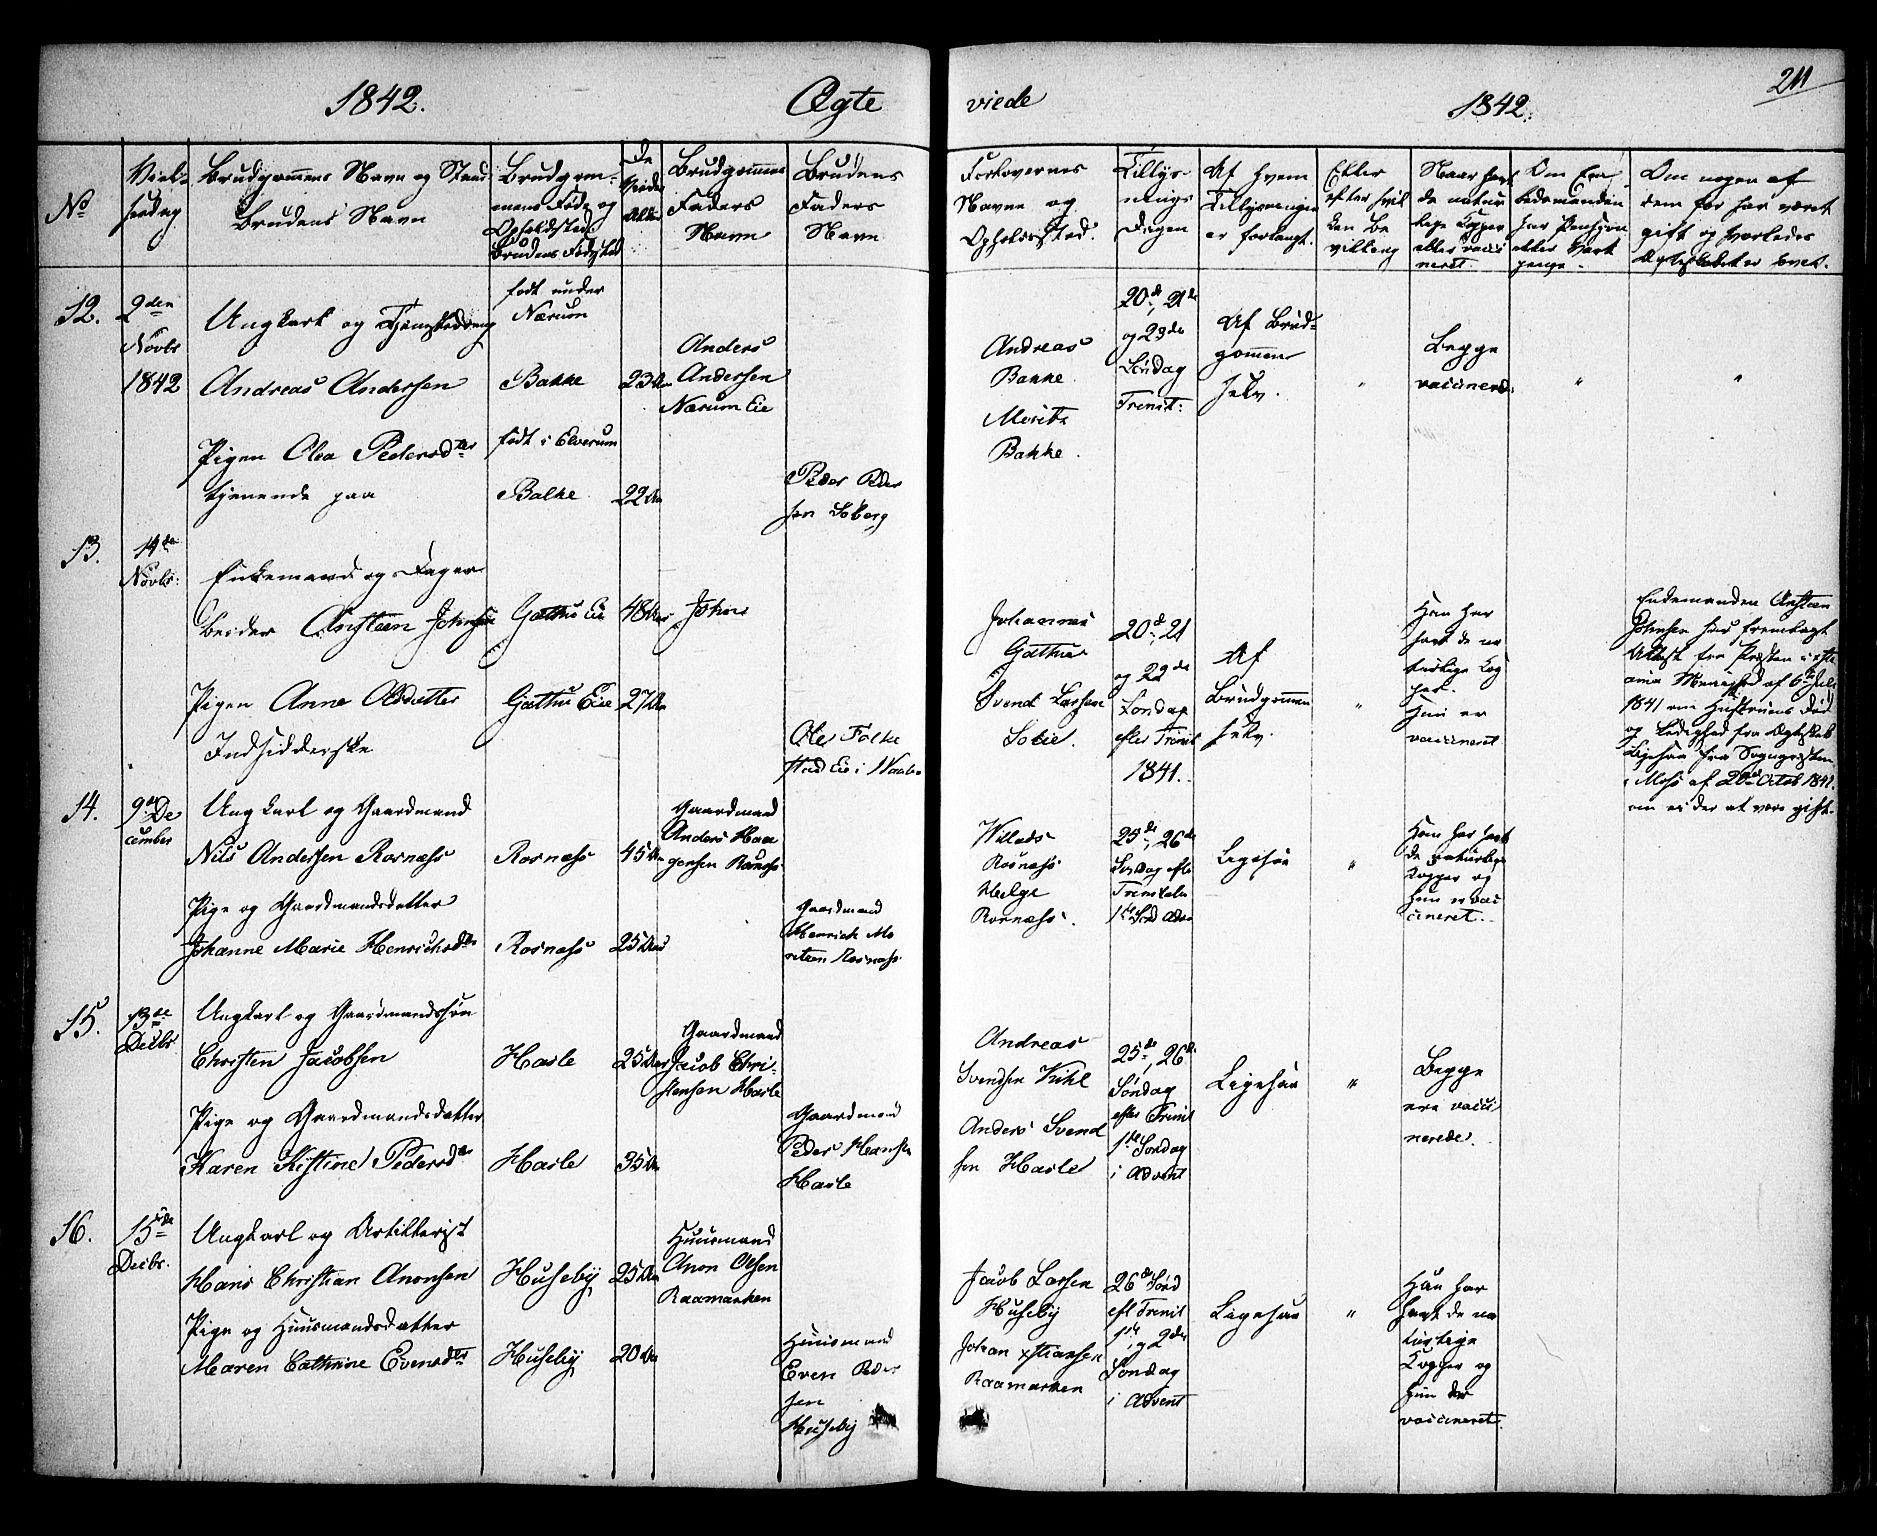 1842. Ægte viede 1842. 211
No
Viel-
sesdag
Brudgommens Navn og Stand
Brudens Navn
Brudgom-
mens Føde og
Opholdssted.
Brudens Fødested
De
Viedes
Alder
Brudgommens
Faders
Navn
Brudens
Faders
Navn
Forlovernes
Navne og
Opholdssted.
Tillys-
nings
Dagen
Af hvem
Tillysningen
er forlangt.
Eller
efter hvil
ken Be
villing
Naar havt
de natur
lige Kopper
eller vacci
neret.
Om Enkemanden
har Pension
eller Vart
penge.
Om nogen af
dem før har været
gift og hvorledes
Ægteskabet er hævet.
12.
2den
Novbr
1842
Ungkarl og Tjenestedreng
Andreas Andersen
Pigen Olea Pedersdtter
tjenende paa
født under
Nærum
Bakke
født i Elverum
Bakke
23 Aar
22 Aar
Anders
Andersen
Nærum Eie
Peder Peder
sen Soberg
Andreas
Bakke
Moritz
Bakke.
20de, 21de
og 23de
Søndag
Trinit:
Af Brud-
gommen
selv.
"
Begge
vaccinered:
"
"
13.
14de
Novbr:
Enkemand og Dagar
beider Ansteen Johnsen
Pigen Anne Olsdatter
Indsidderske
Gæthus Eie
Gæthus Eie
48 Aar
27 Aar
Johns
Ole Folke
stad Eie i Waaler
Johannes
Gæthus
Svend Larsen
Solie.
20de, 21
og 22de
Søndag
efter Trinit
1841.
Af
Brudgommen
selv.
"
Han har
havt de na
turlige Kop
per.
Hun er
vaccineret
Enkemanden Ansteen
Johnsen har fremlagt
Attest fra Præsten i
Menighed af 6te Juli
1841 om Hustruens Død
og Ledighed fra Ægteskab
Ligesaa fra Sognepræsten
i Moss af 20de Octob 1841.
om ei der at være gift.
14.
9de De
cember
Ungkarl og Gaardmand
Nils Andersen Rosnæss
Pige og Gaardmandsdatter
Johanne Marie Henrichsdtr
Rosnæss
Rosnæss
45 Aar
25 Aar
Gaardmand
Anders Haa
gensen Rosnæss
Gaardmand
Henrich Mo
ritzen Rosnæss.
Willads
Rosnæss
Helge
Rosnæss.
25de, 26de
Søndag efter
Trinitatis
1ste Sød Adve
Ligesaa
"
Han har havt
de naturlige
Kopper og
hun er vac
cineret.
15.
13de
Decbr
Ungkarl og Gaardmandssøn
Christen Jacobsen
Pige og Gaardmandsdatter
Karen Kistine Pedersdr
Hasle
Hasle
25 Aar
35 Aar
Gaardmand
Jacob Chri-
stensen Hasle
Gaardmand
Peder Hansen
Hasle
Andreas
Svendsen Kihl
Anders Svend
sen Hasle
25de, 26de
Søndag
efter Trinit
1ste Søndag
i Advent
Ligesaa
"
Begge
ere vacci
nerede.
16.
15de
Decbr.
Ungkarl og Artillerist
Hans Christian Anonsen
Pige og Huusmandsdatter
Maren Cathrine Evensdtr
Huseby
Huseby
25 Aar
20 Aar
Huusmand
Anon Olsen
Raamarken
Huusmand
Even Peder
sen
Huseby
Jacob Larsen
Huseby
Johan Xstiansen
Raamarken
26de Sønd
eft Trinit
1ste og 2den
Søndag
i Advent
Ligesaa
"
Han har
havt de na
turlige
Kopper og
hun der
vaccineret.